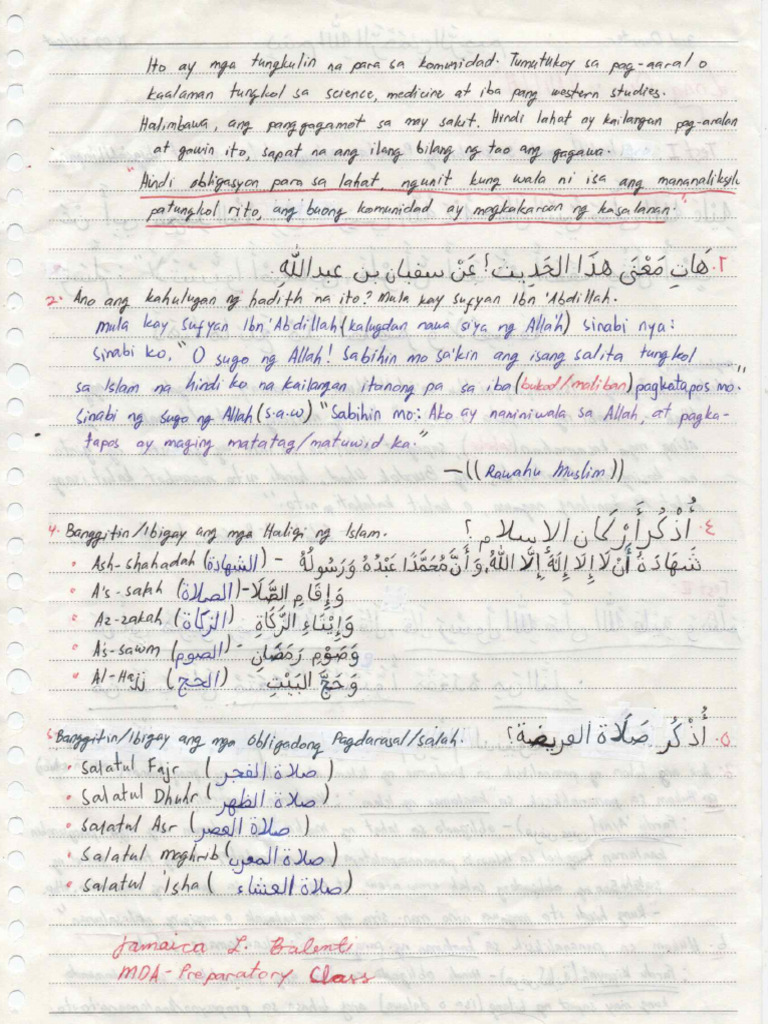 Ito ay mga tungkulin na para sa komunidad. Tumutukoy sa pag-aaral o
kaalaman tungkol sa science, medicine at iba pang western studies.
Halimbawa, ang panggagamot sa may sakit. Hindi lahat ay kailangan pag-aralan
at gawin ito, sapat na ang ilang bilang ng tao ang gagawa.
"Hindi obligasyon para sa lahat, ngunit kung wala ni isa ang mananaliksik
patungkol rito, ang buong komunidad ay magkakaroon ng kasalanan."
٢. هَاتِ مَعْنَى هذَا الحَدِيث! عَنْ سفيان بن عبدِاللهِ.
2. Ano ang kahulugan ng hadith na ito? Mula kay Sufyan Ibn 'Abdillah.
Mula kay Sufyan Ibn 'Abdillah (kalugdan nawa siya ng Allah) sinabi nya:
Sinabi ko, "O sugo ng Allah! Sabihin mo sa'kin ang isang salita tungkol
sa Islam na hindi ko na kailangan itanong pa sa iba (bukod/maliban) pagkatapos mo."
Sinabi ng sugo ng Allah (s.a.w) "Sabihin mo: Ako ay naniniwala sa Allah, at pagka-
tapos ay maging matatag/matuwid ka."
—((Rawahu Muslim))
٤. أُذْكُر أَرْكَان الإسلام؟
4. Banggitin/Ibigay ang mga Haligi ng Islam.
• Ash-shahadah (الشهادة) - شَهَادَةُ أَنْ لَا إِلَهَ إِلَّا اللهُ، وَأَنَّ مُحَمَّدًا عَبْدُهُ وَرَسُولُهُ
• A's-salah (الصلاة) - وَإِقَامِ الصَّلَا
• Az-zakah (الزكاة) وَإِيْتَاءِ الزَّكَاةِ
• As-sawm (الصوم) - وَصَوْمِ رَمَضَانِ
• Al-Hajj (الحج) - وَحَجَّ البَيْتِ
٥. أُذْكُر صَلَاة الفريضة؟
5. Banggitin/Ibigay ang mga Obligadong Pagdarasal/salah.
• Salatul Fajr (صلاة الفجر)
• Salatul Dhuhr (صلاة الظهر)
• Salatul Asr (صلاة العصر)
• Salatul maghrib (صلاة المغرب)
• Salatul 'Isha (صلاة العشاء)
Jamaica L. Balenti
MDA - Preparatory Class